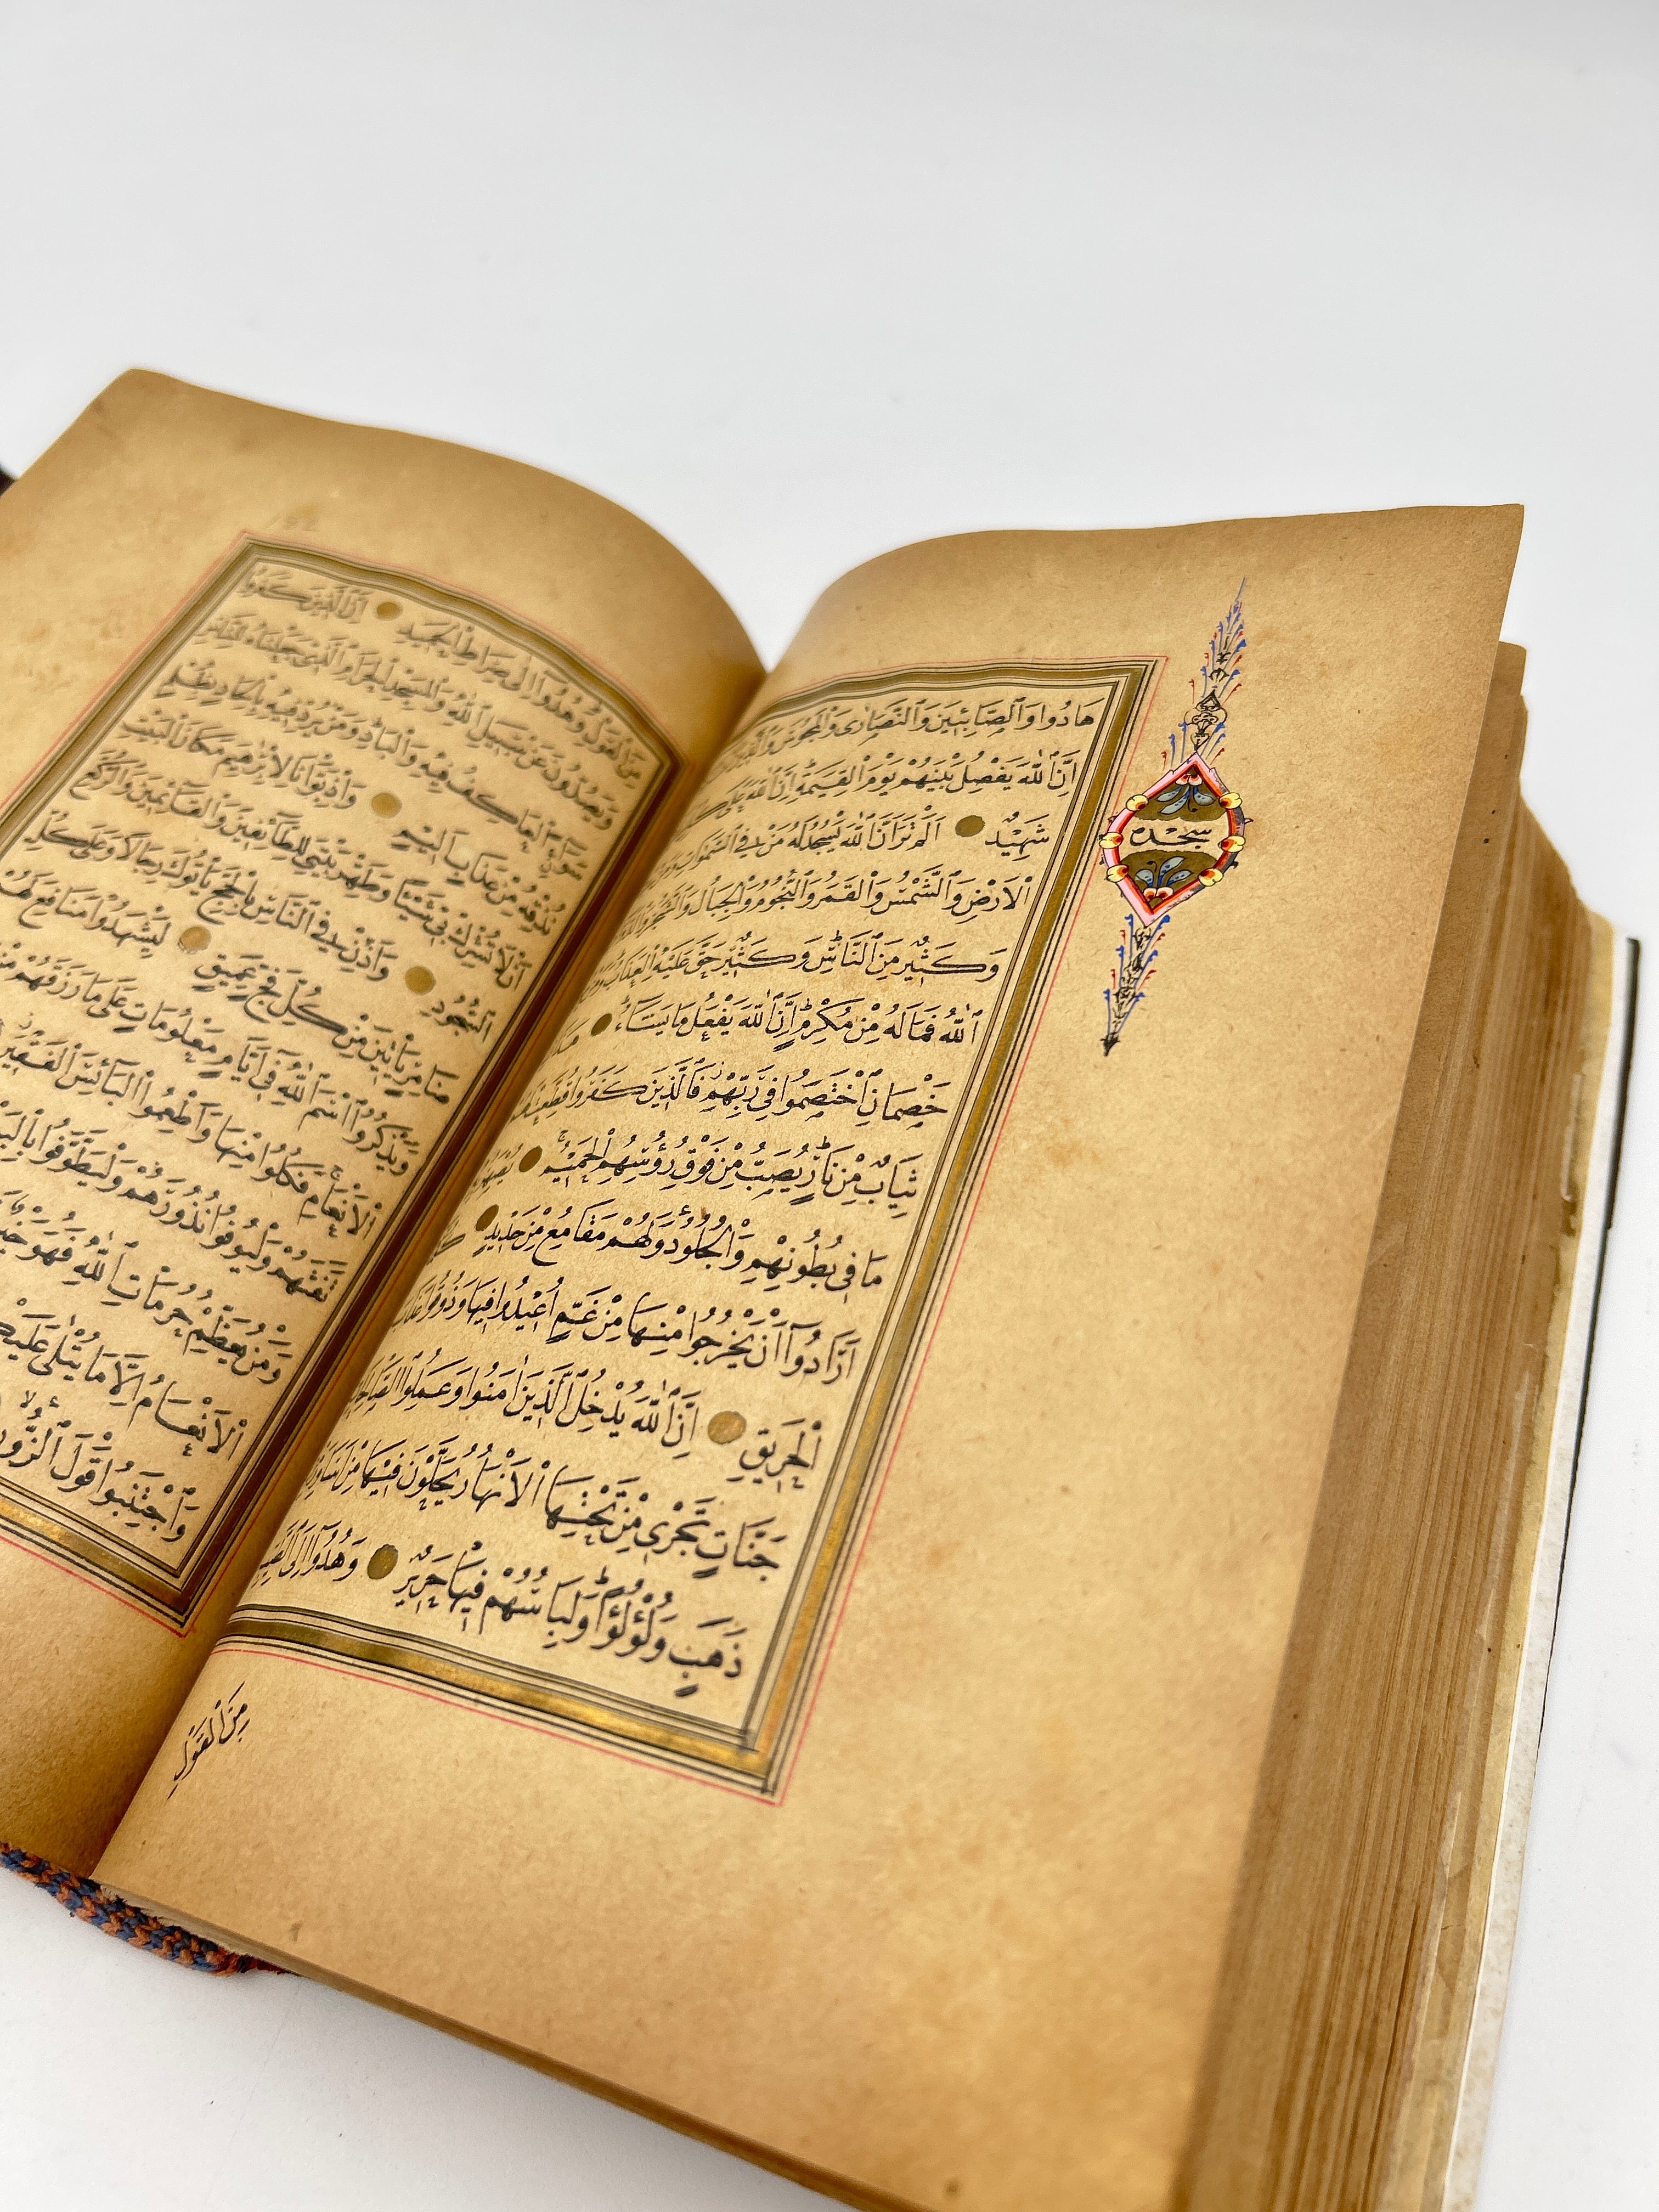 هَادُوا وَالصَّابِئِينَ وَالنَّصَارٰى وَالْمَجُوسَ
اِنَّ اللّٰهَ يَفْصِلُ بَيْنَهُمْ يَوْمَ الْقِيٰمَةِ اِنَّ اللّٰهَ عَلٰى
شَهِيدٌ اَلَمْ تَرَ اَنَّ اللّٰهَ يَسْجُدُ لَهُ مَنْ فِي السَّمٰوَاتِ
الْاَرْضِ وَالشَّمْسُ وَالْقَمَرُ وَالنُّجُومُ وَالْجِبَالُ وَالشَّجَرُ
وَكَثِيرٌ مِنَ النَّاسِ وَكَثِيرٌ حَقَّ عَلَيْهِ الْعَذَابُ
اللّٰهُ فَمَا لَهُ مِنْ مُكْرِمٍ اِنَّ اللّٰهَ يَفْعَلُ مَا يَشَاءُ
خَصْمَانِ اخْتَصَمُوا فِي رَبِّهِمْ فَالَّذِينَ كَفَرُوا قُطِّعَتْ
ثِيَابٌ مِنْ نَارٍ يُصَبُّ مِنْ فَوْقِ رُؤُسِهِمُ الْحَمِيمُ
مَا فِي بُطُونِهِمْ وَالْجُلُودُ وَلَهُمْ مَقَامِعُ مِنْ حَدِيدٍ
اَرَادُوا اَنْ يَخْرُجُوا مِنْهَا مِنْ غَمٍّ اُعِيدُوا فِيهَا وَذُوقُوا
الْحَرِيقِ اِنَّ اللّٰهَ يُدْخِلُ الَّذِينَ اٰمَنُوا وَعَمِلُوا الصَّالِحَاتِ
جَنَّاتٍ تَجْرِي مِنْ تَحْتِهَا الْاَنْهَارُ يُحَلَّوْنَ فِيهَا مِنْ
ذَهَبٍ وَلُؤْلُؤًا وَلِبَاسُهُمْ فِيهَا حَرِيرٌ وَهُدُوا اِلَى
مِنَ الْقَوْلِ
سجده
مِنَ الْقَوْلِ وَهُدُوا اِلٰى صِرَاطِ الْحَمِيدِ اِنَّ الَّذِينَ كَفَرُوا
وَيَصُدُّونَ عَنْ سَبِيلِ اللّٰهِ وَالْمَسْجِدِ الْحَرَامِ الَّذِي جَعَلْنَاهُ لِلنَّاسِ
سَوَاءً الْعَاكِفُ فِيهِ وَالْبَادِ وَمَنْ يُرِدْ فِيهِ بِاِلْحَادٍ بِظُلْمٍ
نُذِقْهُ مِنْ عَذَابٍ اَلِيمٍ وَاِذْ بَوَّاْنَا لِاِبْرٰهِيمَ مَكَانَ الْبَيْتِ
اَنْ لَا تُشْرِكْ بِي شَيْئًا وَطَهِّرْ بَيْتِيَ لِلطَّائِفِينَ وَالْقَائِمِينَ وَالرُّكَّعِ
السُّجُودِ وَاَذِّنْ فِي النَّاسِ بِالْحَجِّ يَاْتُوكَ رِجَالًا وَعَلٰى كُلِّ
ضَامِرٍ يَاْتِينَ مِنْ كُلِّ فَجٍّ عَمِيقٍ لِيَشْهَدُوا مَنَافِعَ لَهُمْ
وَيَذْكُرُوا اسْمَ اللّٰهِ فِي اَيَّامٍ مَعْلُومَاتٍ عَلٰى مَا رَزَقَهُمْ مِنْ
الْاَنْعَامِ فَكُلُوا مِنْهَا وَاَطْعِمُوا الْبَائِسَ الْفَقِيرَ
تَفَثَهُمْ وَلْيُوفُوا نُذُورَهُمْ وَلْيَطَّوَّفُوا
وَمَنْ يُعَظِّمْ حُرُمَاتِ اللّٰهِ فَهُوَ خَيْرٌ
الْاَنْعَامُ اِلَّا مَا يُتْلٰى عَلَيْكُمْ
وَاجْتَنِبُوا قَوْلَ الزُّورِ